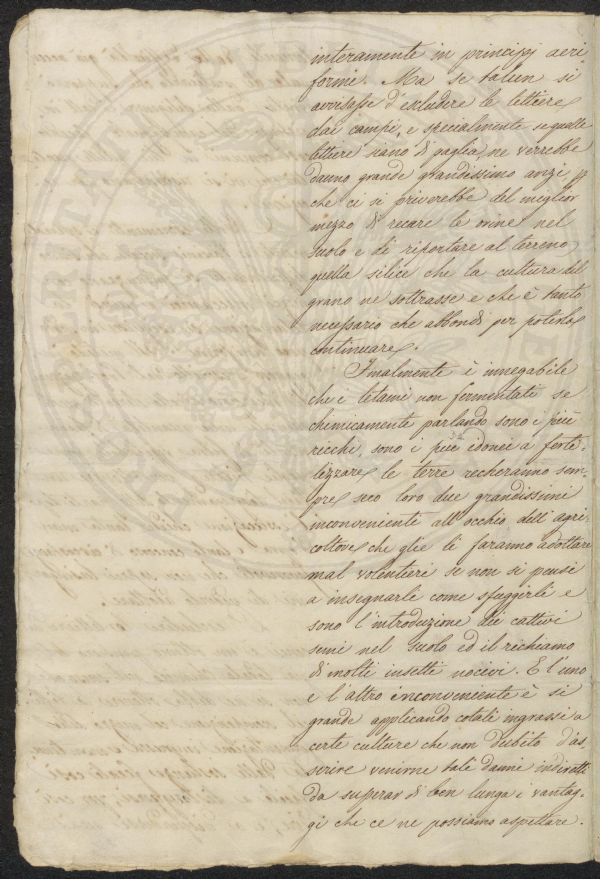 interamente in principj aeri
formi. Ma se talun si
avvisasse d'escludere le lettiere
dai campi, e specialmente se quelle
lettiere siano di paglia, ne verrebbe
danno grande grandissimo anzi p
che ci si priverebbe del miglior
mezzo di recare le orine nel
suolo e di riportare al terreno
quella silice che la cultura del
grano ne sottrasse e che è tanto
necessario che abbondi per poterlo
continuare.
Finalmente è innegabile
che i letami non fermentati se
chimicamente parlando sono i più
ricchi, sono i più idonei a ferti-
lizzare le terre recheranno sem-
pre seco loro due grandissimi
inconveniente all'occhio dell'agri-
coltore che glie li faranno adottare
mal volentieri se non si pensi
a insegnarli come sfuggirli e
sono l'introduzione dei cattivi
semi nel suolo ed il richiamo
di molti insetti nocivi. E l'uno
e l'altro inconveniente è si
grande applicando cotali ingrassi a
certe culture che non dubito d'as-
serire venirne tali danni indiretti
da superar di ben lunga i vantag-
gi che ce ne possiamo aspettare.